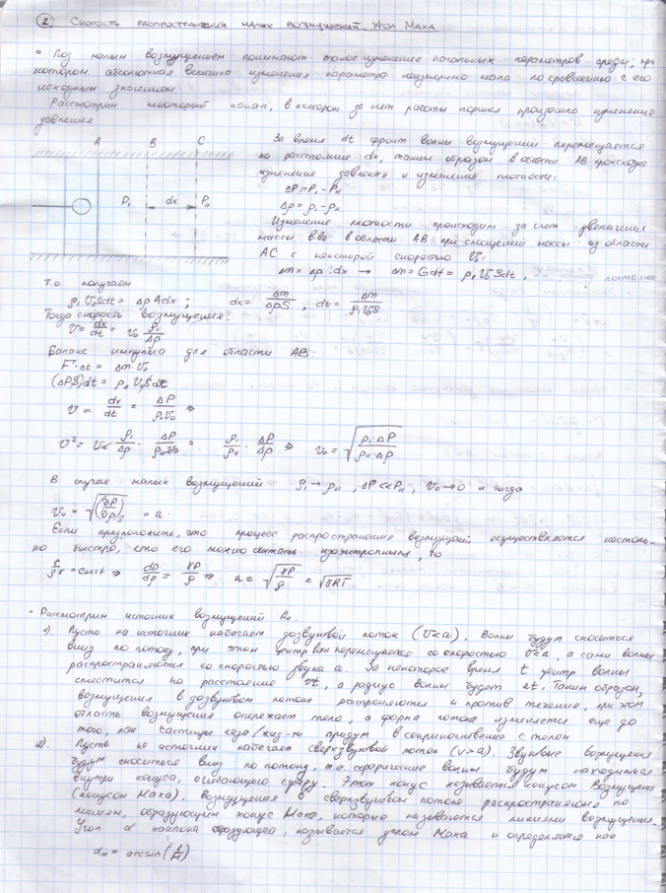 2 Скорость распространения малых возмущений Угол Маха
• Под малым возмущением понимают такое изменение начальных параметров среды, при
котором абсолютная величина изменения параметра неизмеримо мала по сравнению с его
исходным значением.
Рассмотрим некоторый канал, в котором за счет работы поршня произошло изменение
давления
A B C
За время dt фронт волны возмущений перемещается
на расстояние dx, таким образом в области AB происходит
изменение давления и изменение плотности:
P₁ dx Pн
ΔP = P₁ - Pн
Δρ = ρ₁ - ρн
Изменение плотности происходит за счет увеличения
массы в-ва в области AB при смещении массы из области
AC с некоторой скоростью V₀:
Δm = Δρ · dx → Δm = Gdt = ρ₁ V₀ S dt,
Т.о. получаем
ρ₁ V₀ S dt = Δρ A dx ; dx = Δm/ΔρS , dt = Δm/ρ₁V₀S
Тогда скорость возмущения:
V = dx/dt = V₀ ρ₁/Δρ
Баланс импульса для области AB:
F · Δt = Δm · V₀
(ΔPS)dt = ρн V₀ S dt
V = dx/dt = ΔP/ρнV₀ ⇒
V² = V₀ ρ₁/Δρ · ΔP/ρнV₀ = ρ₁/ρн · ΔP/Δρ ⇒ V₀ = √(ρ₁·ΔP/ρн·Δρ)
В случае малых возмущений ρ₁ → ρн , ΔP << Pн , V₀ → 0 и тогда
V₀ = √(∂P/∂ρ)s = a.
Если предположить, что процесс распространения возмущений осуществляется настоль-
ко быстро, что его можно считать изоэнтропным, то
P/ρ^γ = const ⇒ dP/dρ = γP/ρ ⇒ a = √(γP/ρ) = √(γRT)
• Рассмотрим источник возмущений A₀.
1). Пусть на источник набегает дозвуковой поток (V<a). Волны будут сноситься
вниз по потоку, при этом центр волн перемещается со скоростью V<a, а сами волны
распространяются со скоростью звука a. За некоторое время t центр волны
сместится на расстояние Vt, а радиус волны будет at. Таким образом,
возмущения в дозвуковом потоке распространяются и против течения, при этом
область возмущения опережает тело, а форма потока изменяется еще до
того, как частицы газа/жид-ти придут в соприкосновение с телом
2). Пусть на источник набегает сверхзвуковой поток (V>a). Звуковые возмущения
будут сноситься вниз по потоку, т.е. сферические волны будут находиться
внутри конуса, огибающего сферу. Этот конус называется конусом возмущения
(конусом Маха). Возмущения в сверхзвуковом потоке распространяются по
линиям, образующим конус Маха, которые называются линиями возмущения.
Угол α наклона образующей, называется углом Маха и определяется как
αм = arcsin(1/M)